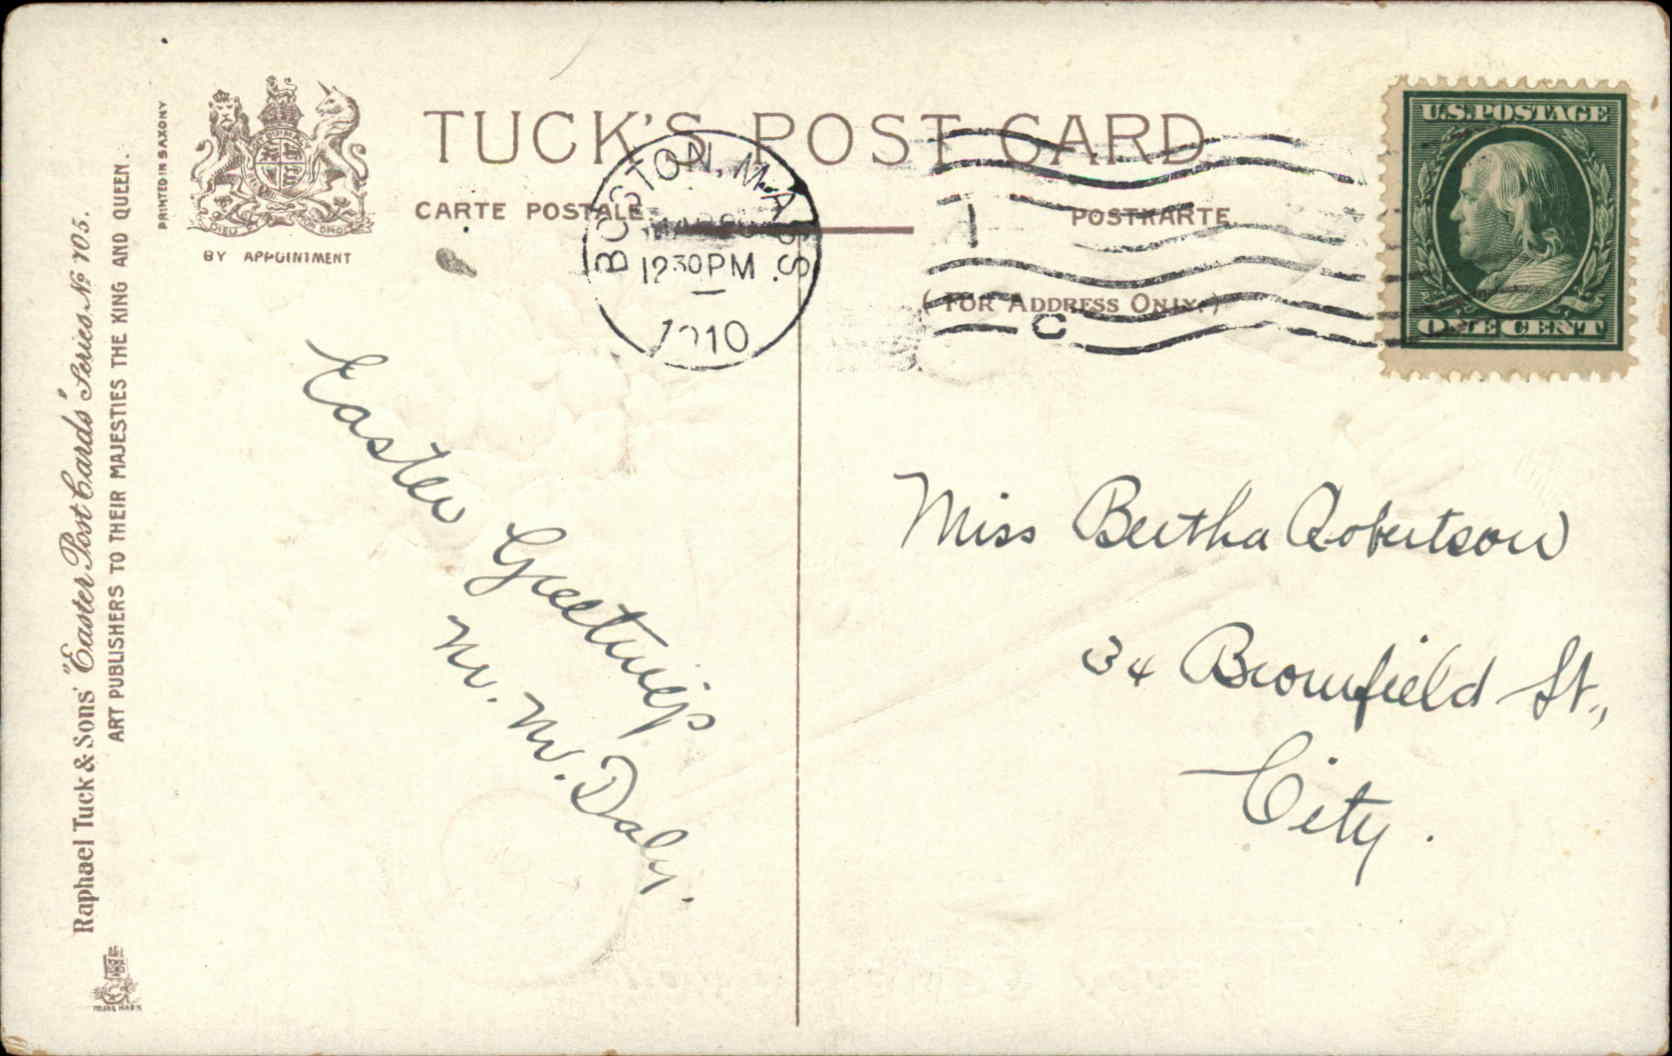 TUCK'S POST CARD
CARTE POSTALE
POSTKARTE.
(FOR ADDRESS ONLY.)
PRINTED IN SAXONY
BY APPOINTMENT
Raphael Tuck & Sons' "Easter Post Cards" Series No 705.
ART PUBLISHERS TO THEIR MAJESTIES THE KING AND QUEEN.
BOSTON, MASS.
12 30 PM
1910
1
C
U.S. POSTAGE
ONE CENT
Easter Greetings
M. M. Daly.
Miss Bertha Robertson
34 Bromfield St.,
City.